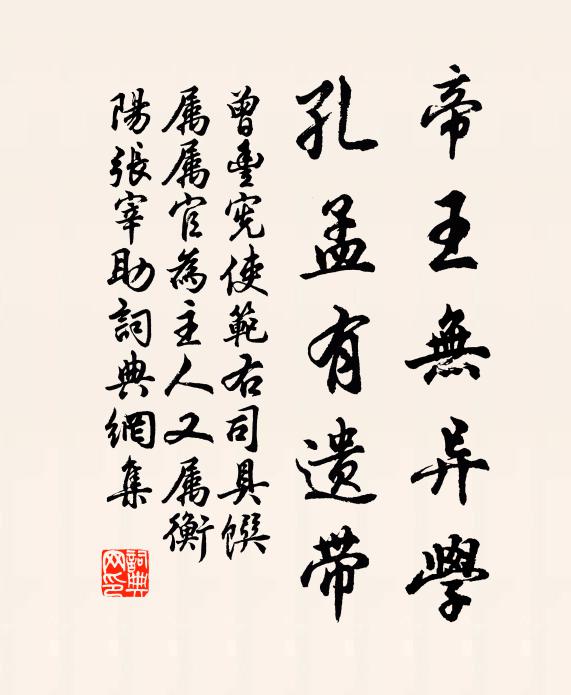 帝王無异學
孔孟有遺带
曾豊宪使範右司具饌
属属官為主人又属衡
陽張宰助詞典網集
詞典网印